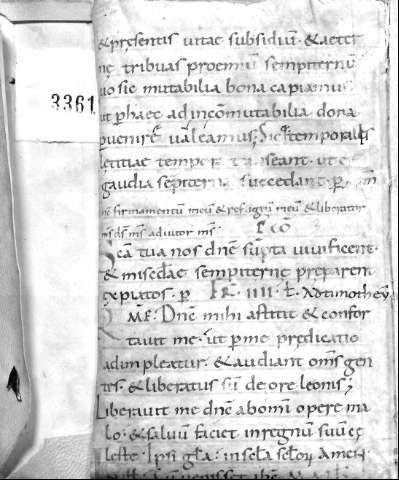 3361
& presentis uitae subsidiũ · & aeter
ne tribuas proemiũ sempiternũ
sic mutabilia bona capiamus
ut p haec ad incõmutabilia dona
puenire ualeamus; Sic temporalis
letitiae tempora transeant · ut
gaudia sempiterna succedant · p
firmamentũ meũ & refugiũ meũ & liberator
ms ds ms adiutor ms
Scã tua nos dñe sũpta uiuificent ·
& misedae sempiterne preparent
expiatos · p Ad timotheũ
Dñe mihi astitit & confor
tauit me · ut p me predicatio
adimpleatur · & audiant oms gen
tes · & liberatus sũ de ore leonis;
Liberauit me dñs ab omi opere ma
lo · & saluũ faciet in regnũ suũ cę
leste · Ipsi glã · in secla seclor̃ Amen